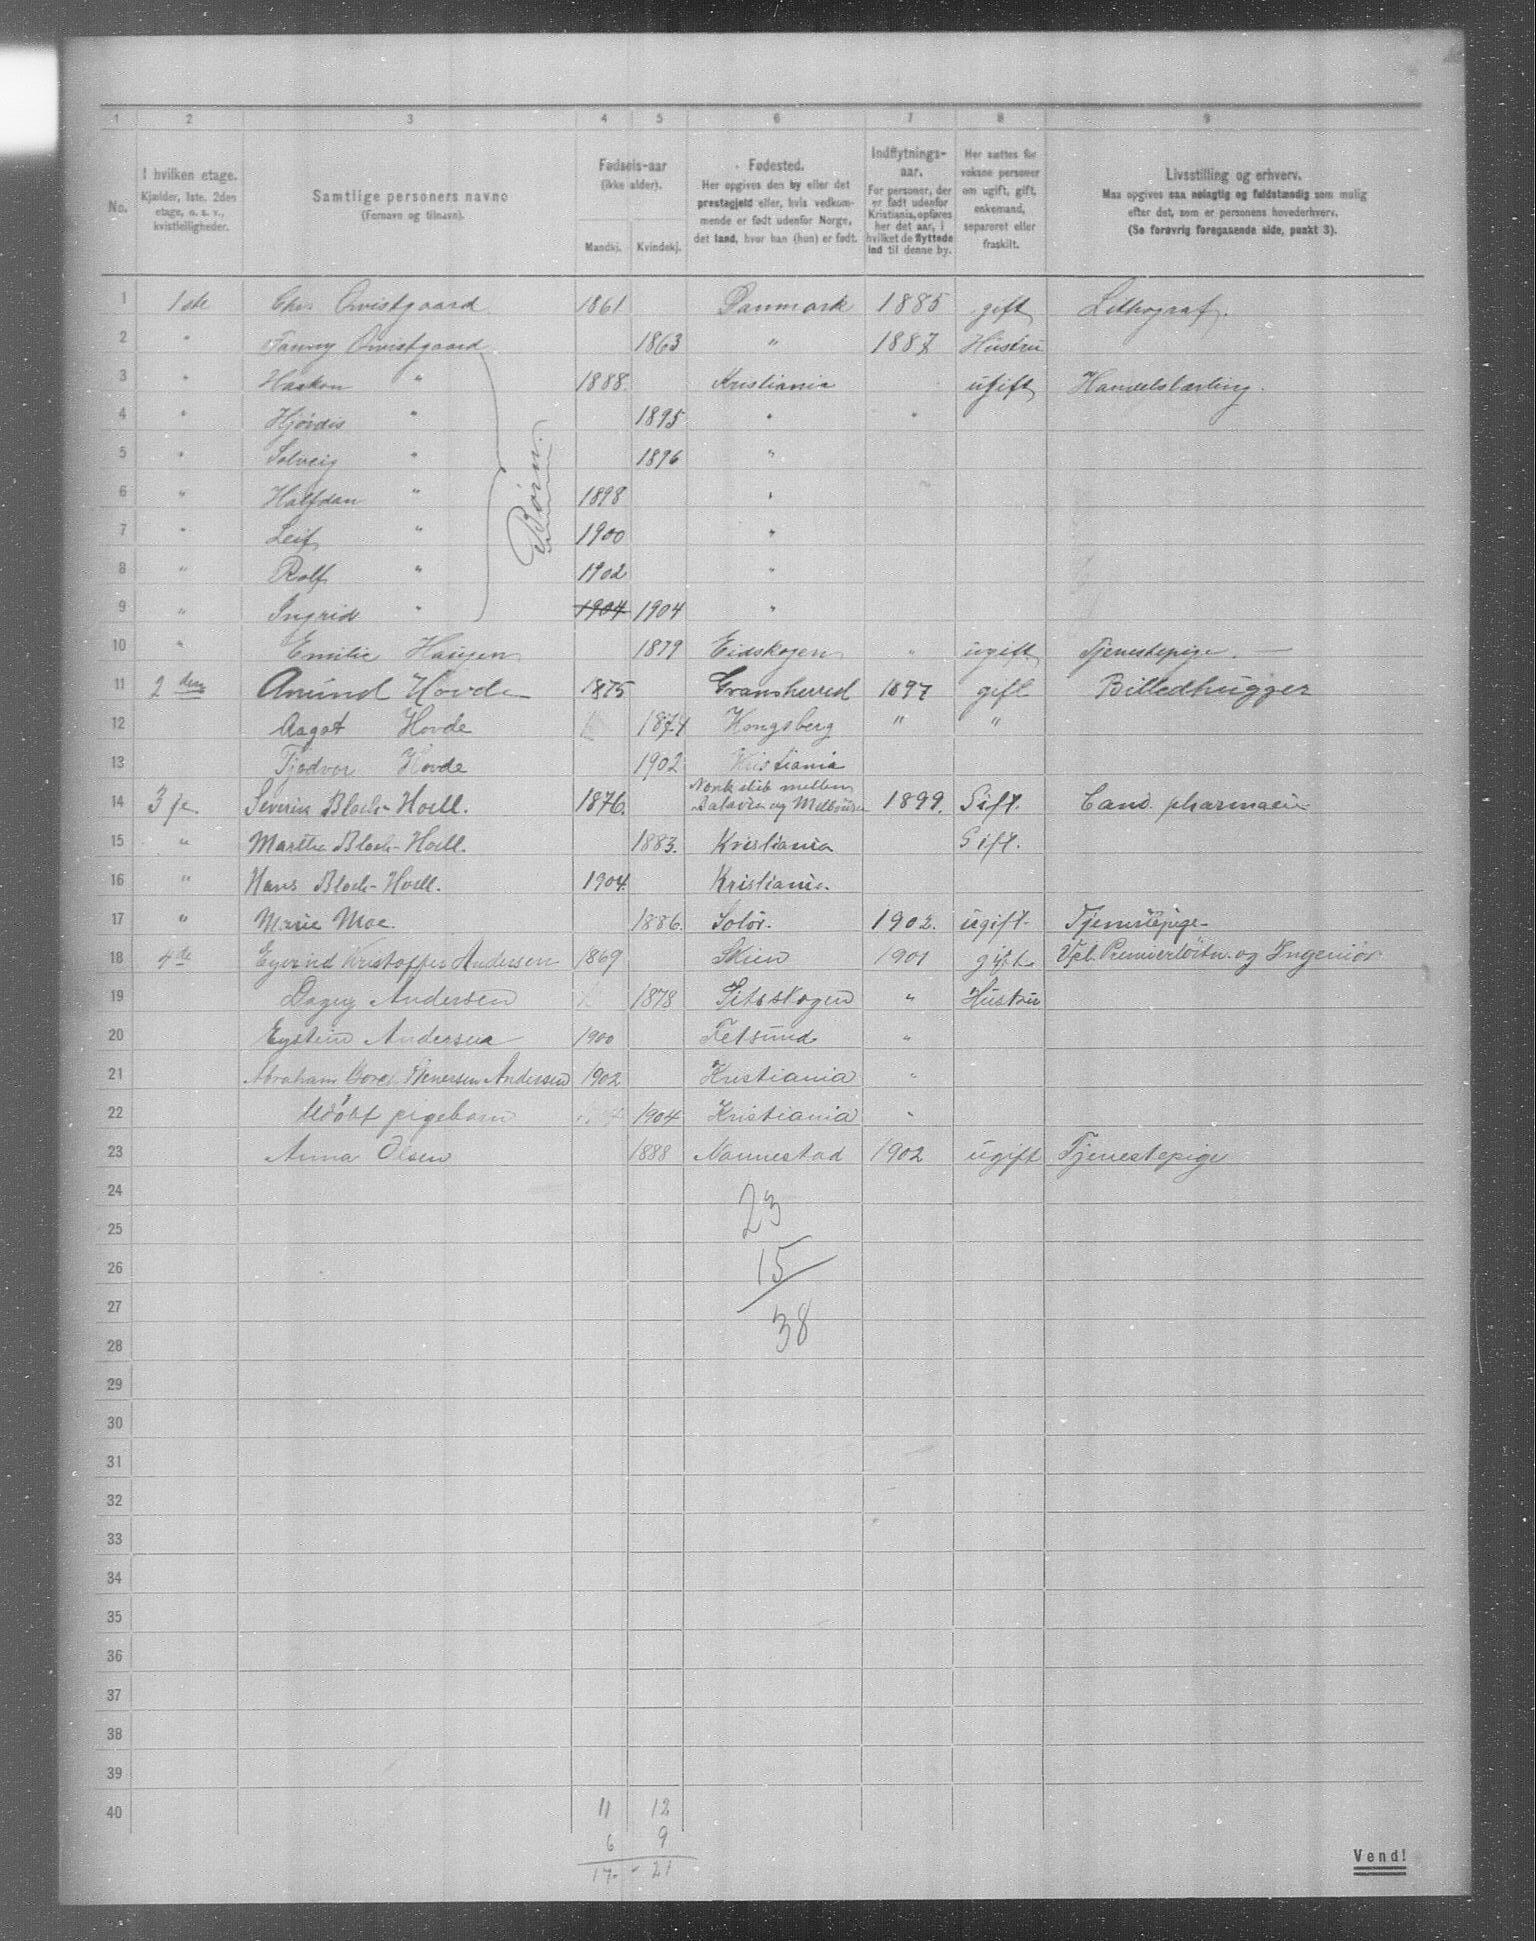 1 2 3 4 5 6 7 8 9
No.
I hvilken etage.
Kjælder, 1ste, 2den
etage, o. s. v.,
kvistleiligheder.
Samtlige personers navne
(Fornavn og tilnavn).
Fødsels-aar
(ikke alder).
Mandkj. Kvindekj.
Fødested.
Her opgives den by eller det
prestegjeld eller, hvis vedkom-
mende er født udenfor Norge,
det land, hvor han (hun) er født.
Indflytnings-
aar.
For personer, der
er født udenfor
Kristiania, opføres
her det aar, i
hvilket de flyttede
ind til denne by.
Her sættes for
voksne personer
om ugift, gift,
enkemand,
separeret eller
fraskilt.
Livsstilling og erhverv.
Maa opgives saa nøiagtig og fuldstændig som mulig
efter det, som er personens hovederhverv.
(Se forøvrig foregaaende side, punkt 3).
1 1ste Chr. Qvistgaard 1861 Danmark 1885 gift Lithograf.
2 " Fanny Qvistgaard 1863 " 1887 Hustru
3 " Haakon " 1888 Kristiania ugift Handelslærling.
4 " Hjørdis " 1895 " "
5 " Solveig " 1896 "
6 " Halfdan " 1898 "
Børn.
7 " Leif " 1900 "
8 " Rolf " 1902 "
9 " Ingrid " 1904 1904 "
10 " Emilie Haugen 1879 Eidskogen " ugift Tjenestepige.
11 2den Amund Hovde 1875 Gransherred 1897 gift Billedhugger
12 Aagot Hovde 1874 Kongsberg " "
13 Tjodvor Hovde 1902 Kristiania
14 3je Severin Bloch-Hoell. 1876. Norsk skib mellem
Batavia og Melbourne 1899. Gift. Cand. pharmacie
15 " Martha Bloch-Hoell. 1883. Kristiania Gift.
16 " Hans Bloch-Hoell. 1904. Kristiania.
17 " Marie Moe. 1886. Solør. 1902. ugift. Tjenestepige
18 4de Eyvind Kristoffer Andersen 1869 Skien 1901 gift Vpl. Premierløitn. og Ingeniør
19 Dagny Andersen 1878 Sitskogen " Hustru
20 Eystein Andersen 1900 Fetsund "
21 Abraham Andersen 1902 Kristiania "
22 Udøbt pigebarn 1904 Kristiania "
23 Anna Olsen 1888 Nannestad 1902 ugift Tjenestepige
24
23
25
26
15
27
38
28
29
30
31
32
33
34
35
36
37
38
39
40 11 12
6 9
17 - 21
Vend!